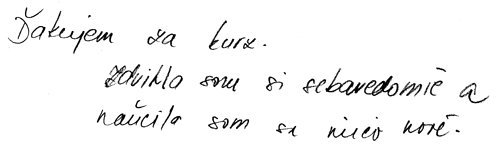 Ďakujem za kurz.
Zdvihla som si sebavedomie a
naučila som sa niečo nové.